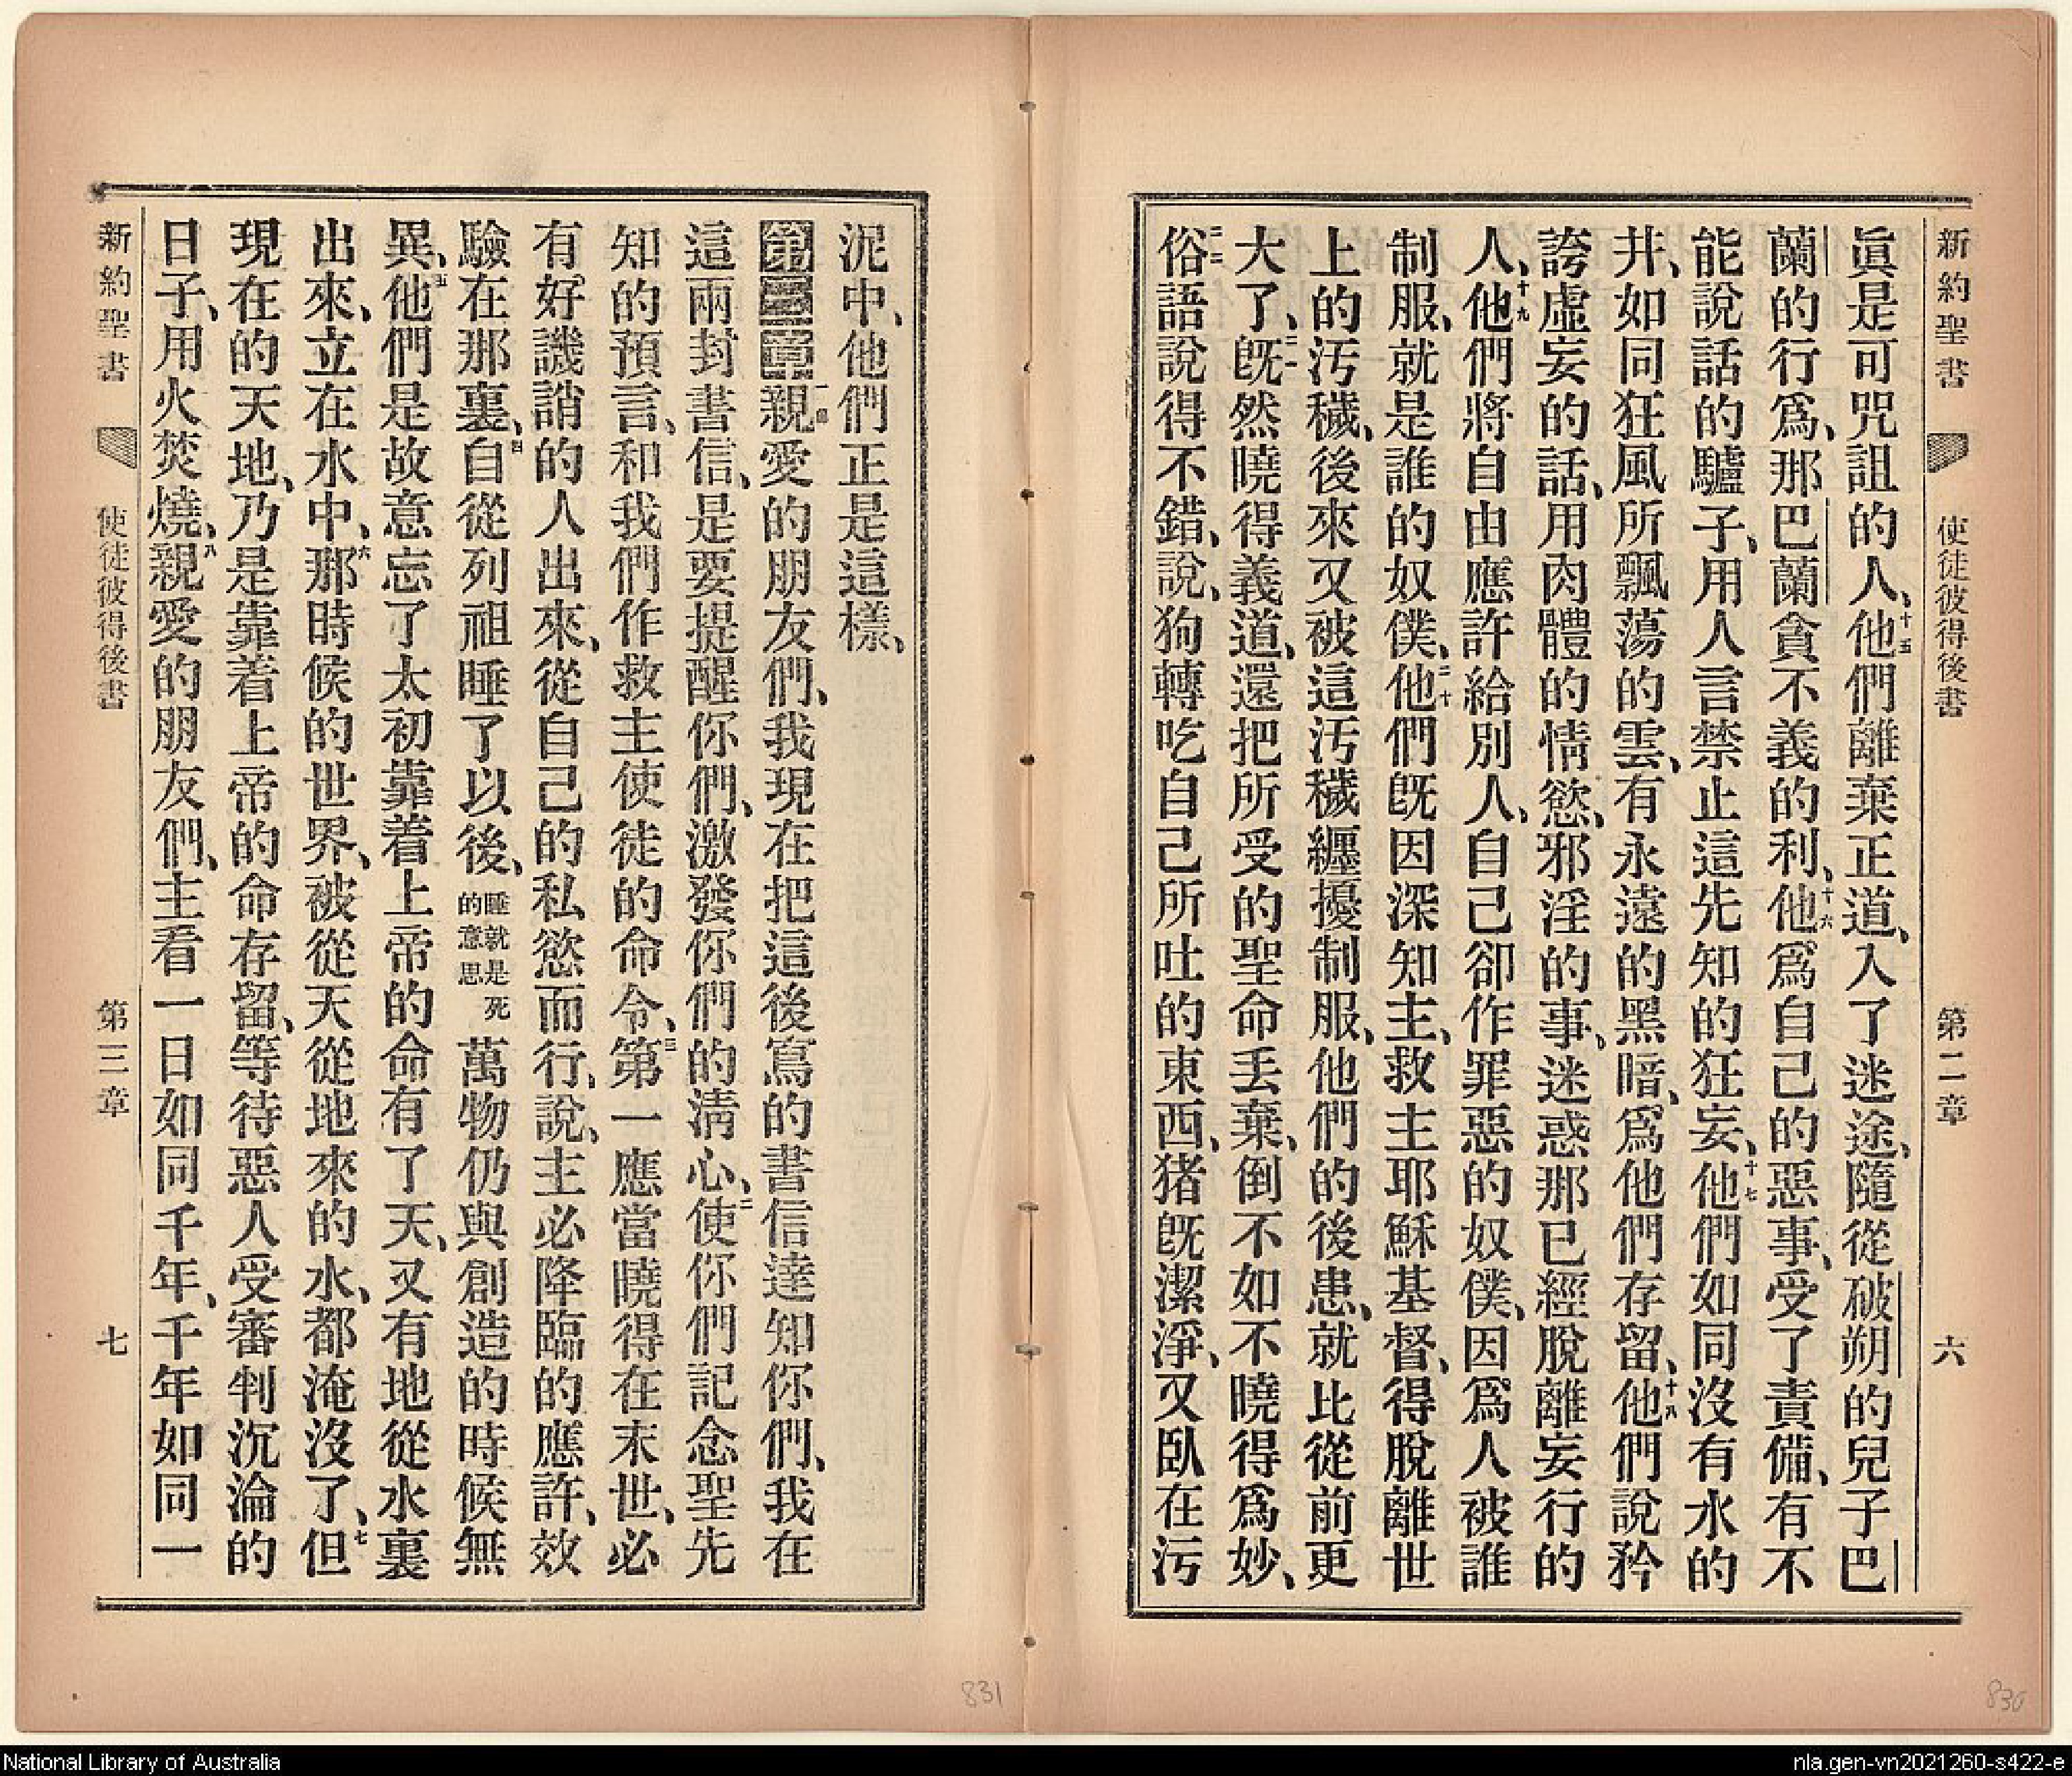 新約聖書 使徒彼得後書 第二章 六
眞是可咒詛的人、十五他們離棄正道、入了迷途、隨從破朔的兒子巴
蘭的行爲、那巴蘭貪不義的利、十六他爲自己的惡事、受了責備、有不
能說話的驢子、用人言禁止這先知的狂妄、十七他們如同沒有水的
井、如同狂風所飄蕩的雲、有永遠的黑暗、爲他們存留、十八他們說矜
誇虛妄的話、用肉體的情慾、邪淫的事、迷惑那已經脫離妄行的
人、十九他們將自由應許給別人、自己卻作罪惡的奴僕、因爲人被誰
制服、就是誰的奴僕、二十他們旣因深知主、救主耶穌基督、得脫離世
上的汚穢、後來又被這汚穢纒擾制服、他們的後患、就比從前更
大了、二一旣然曉得義道、還把所受的聖命丟棄、倒不如不曉得爲妙、
二二俗語說得不錯、說、狗轉吃自己所吐的東西、猪旣潔淨、又臥在污
泥中、他們正是這樣、
第三章一節親愛的朋友們、我現在把這後寫的書信達知你們、我在
這兩封書信、是要提醒你們、激發你們的淸心、二使你們記念聖先
知的預言、和我們作救主使徒的命令、三第一應當曉得在末世、必
有好譏誚的人出來、從自己的私慾而行、說、主必降臨的應許、效
驗在那裏、四自從列祖睡了以後、睡就是死的意思萬物仍與創造的時候無
異、五他們是故意忘了太初靠着上帝的命有了天、又有地從水裏
出來、立在水中、六那時候的世界、被從天從地來的水、都淹沒了、七但
現在的天地、乃是靠着上帝的命存留、等待惡人受審判沉淪的
日子、用火焚燒、八親愛的朋友們、主看一日如同千年、千年如同一
新約聖書 使徒彼得後書 第三章 七
831
830
National Library of Australia
nla.gen-vn2021260-s422-e